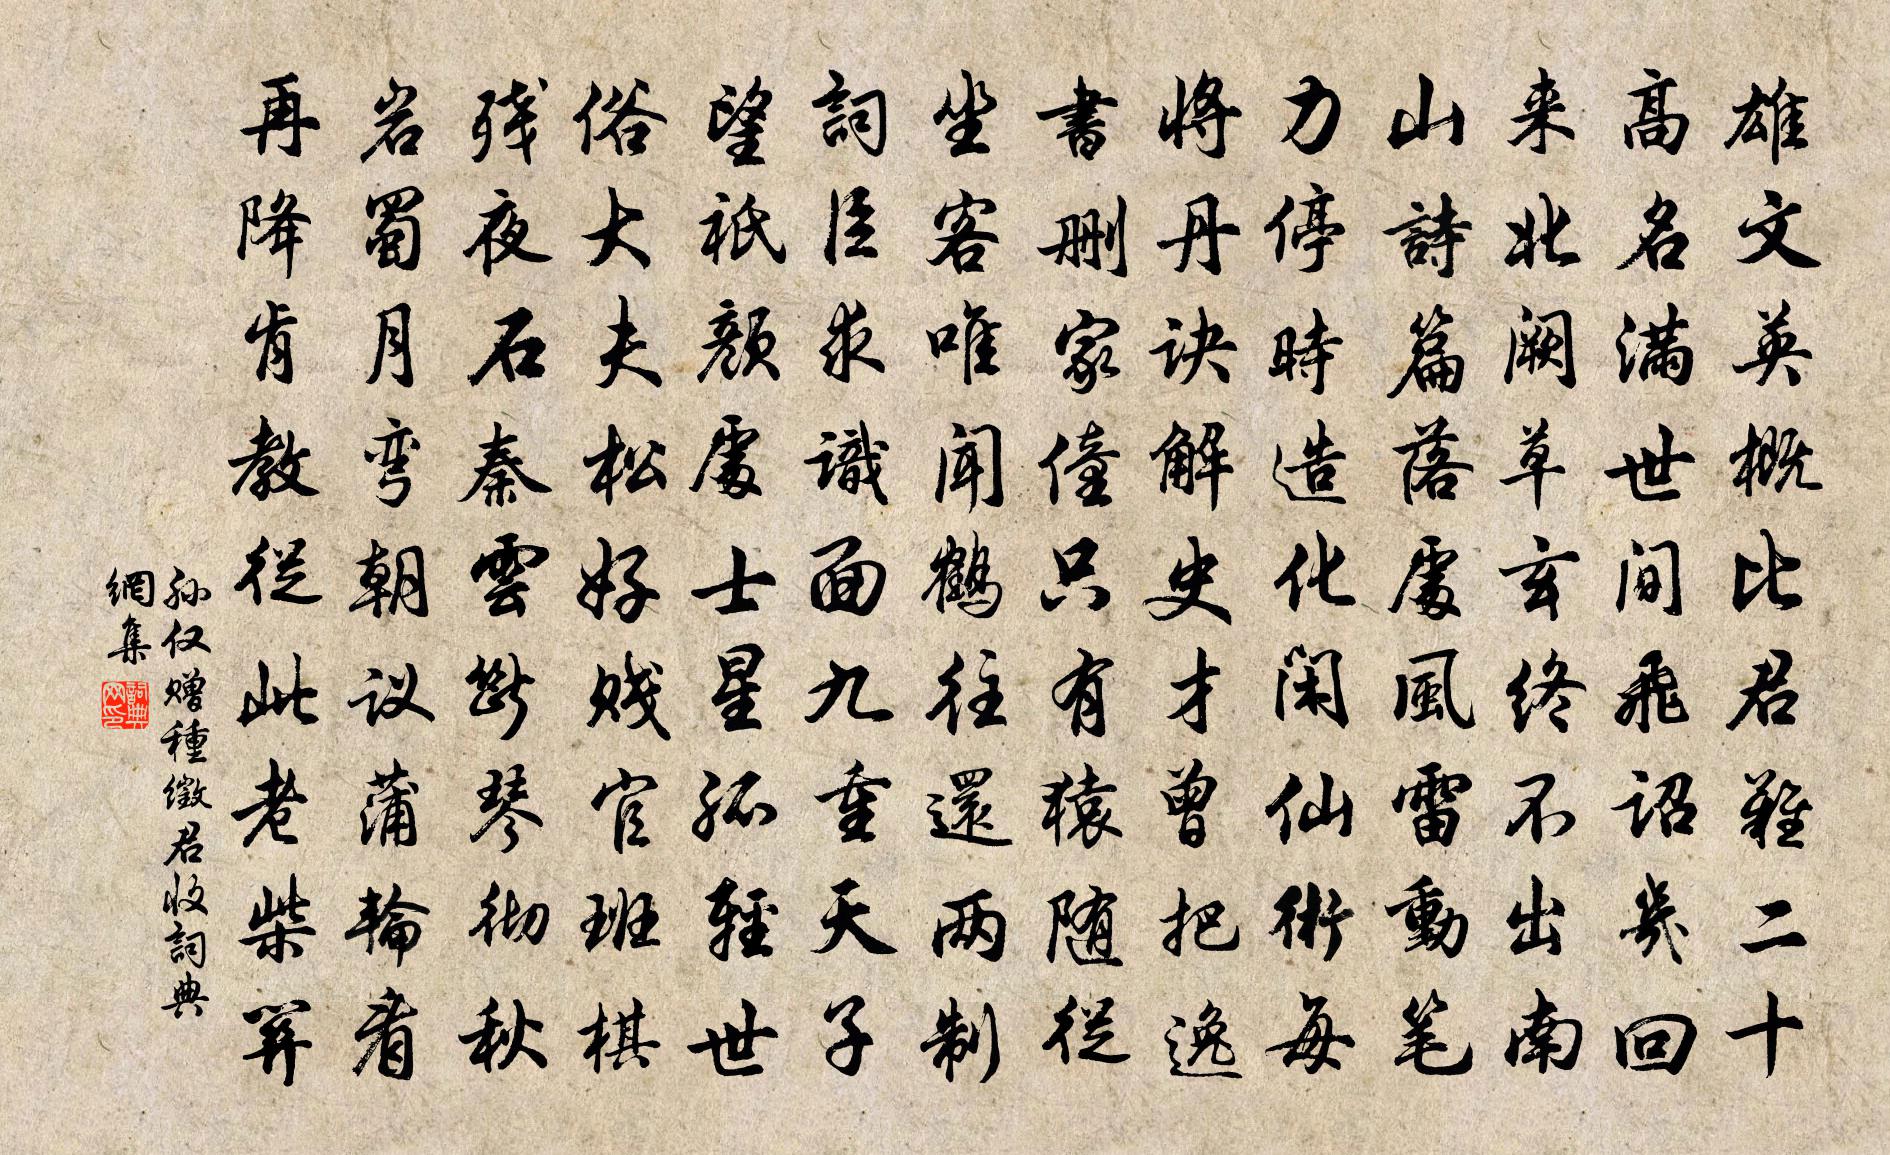 雄文英概比君難二十
高名满世间飛詔幾回
来北阙草玄终不出南
山詩篇落處風雷動笔
力停時造化闲仙術每
将丹诀解史才曾把逸
書删家僮只有猿随從
坐客唯闻鹤往還两制
詞臣求識面九重天子
望祇颜處士星孤輕世
俗大夫松好贱官班棋
残夜石秦雲断琴彻秋
岩蜀月弯朝议蒲輪看
再降肯教從此老柴關
孙仅赠種徵君收詞典
網集
詞典网印